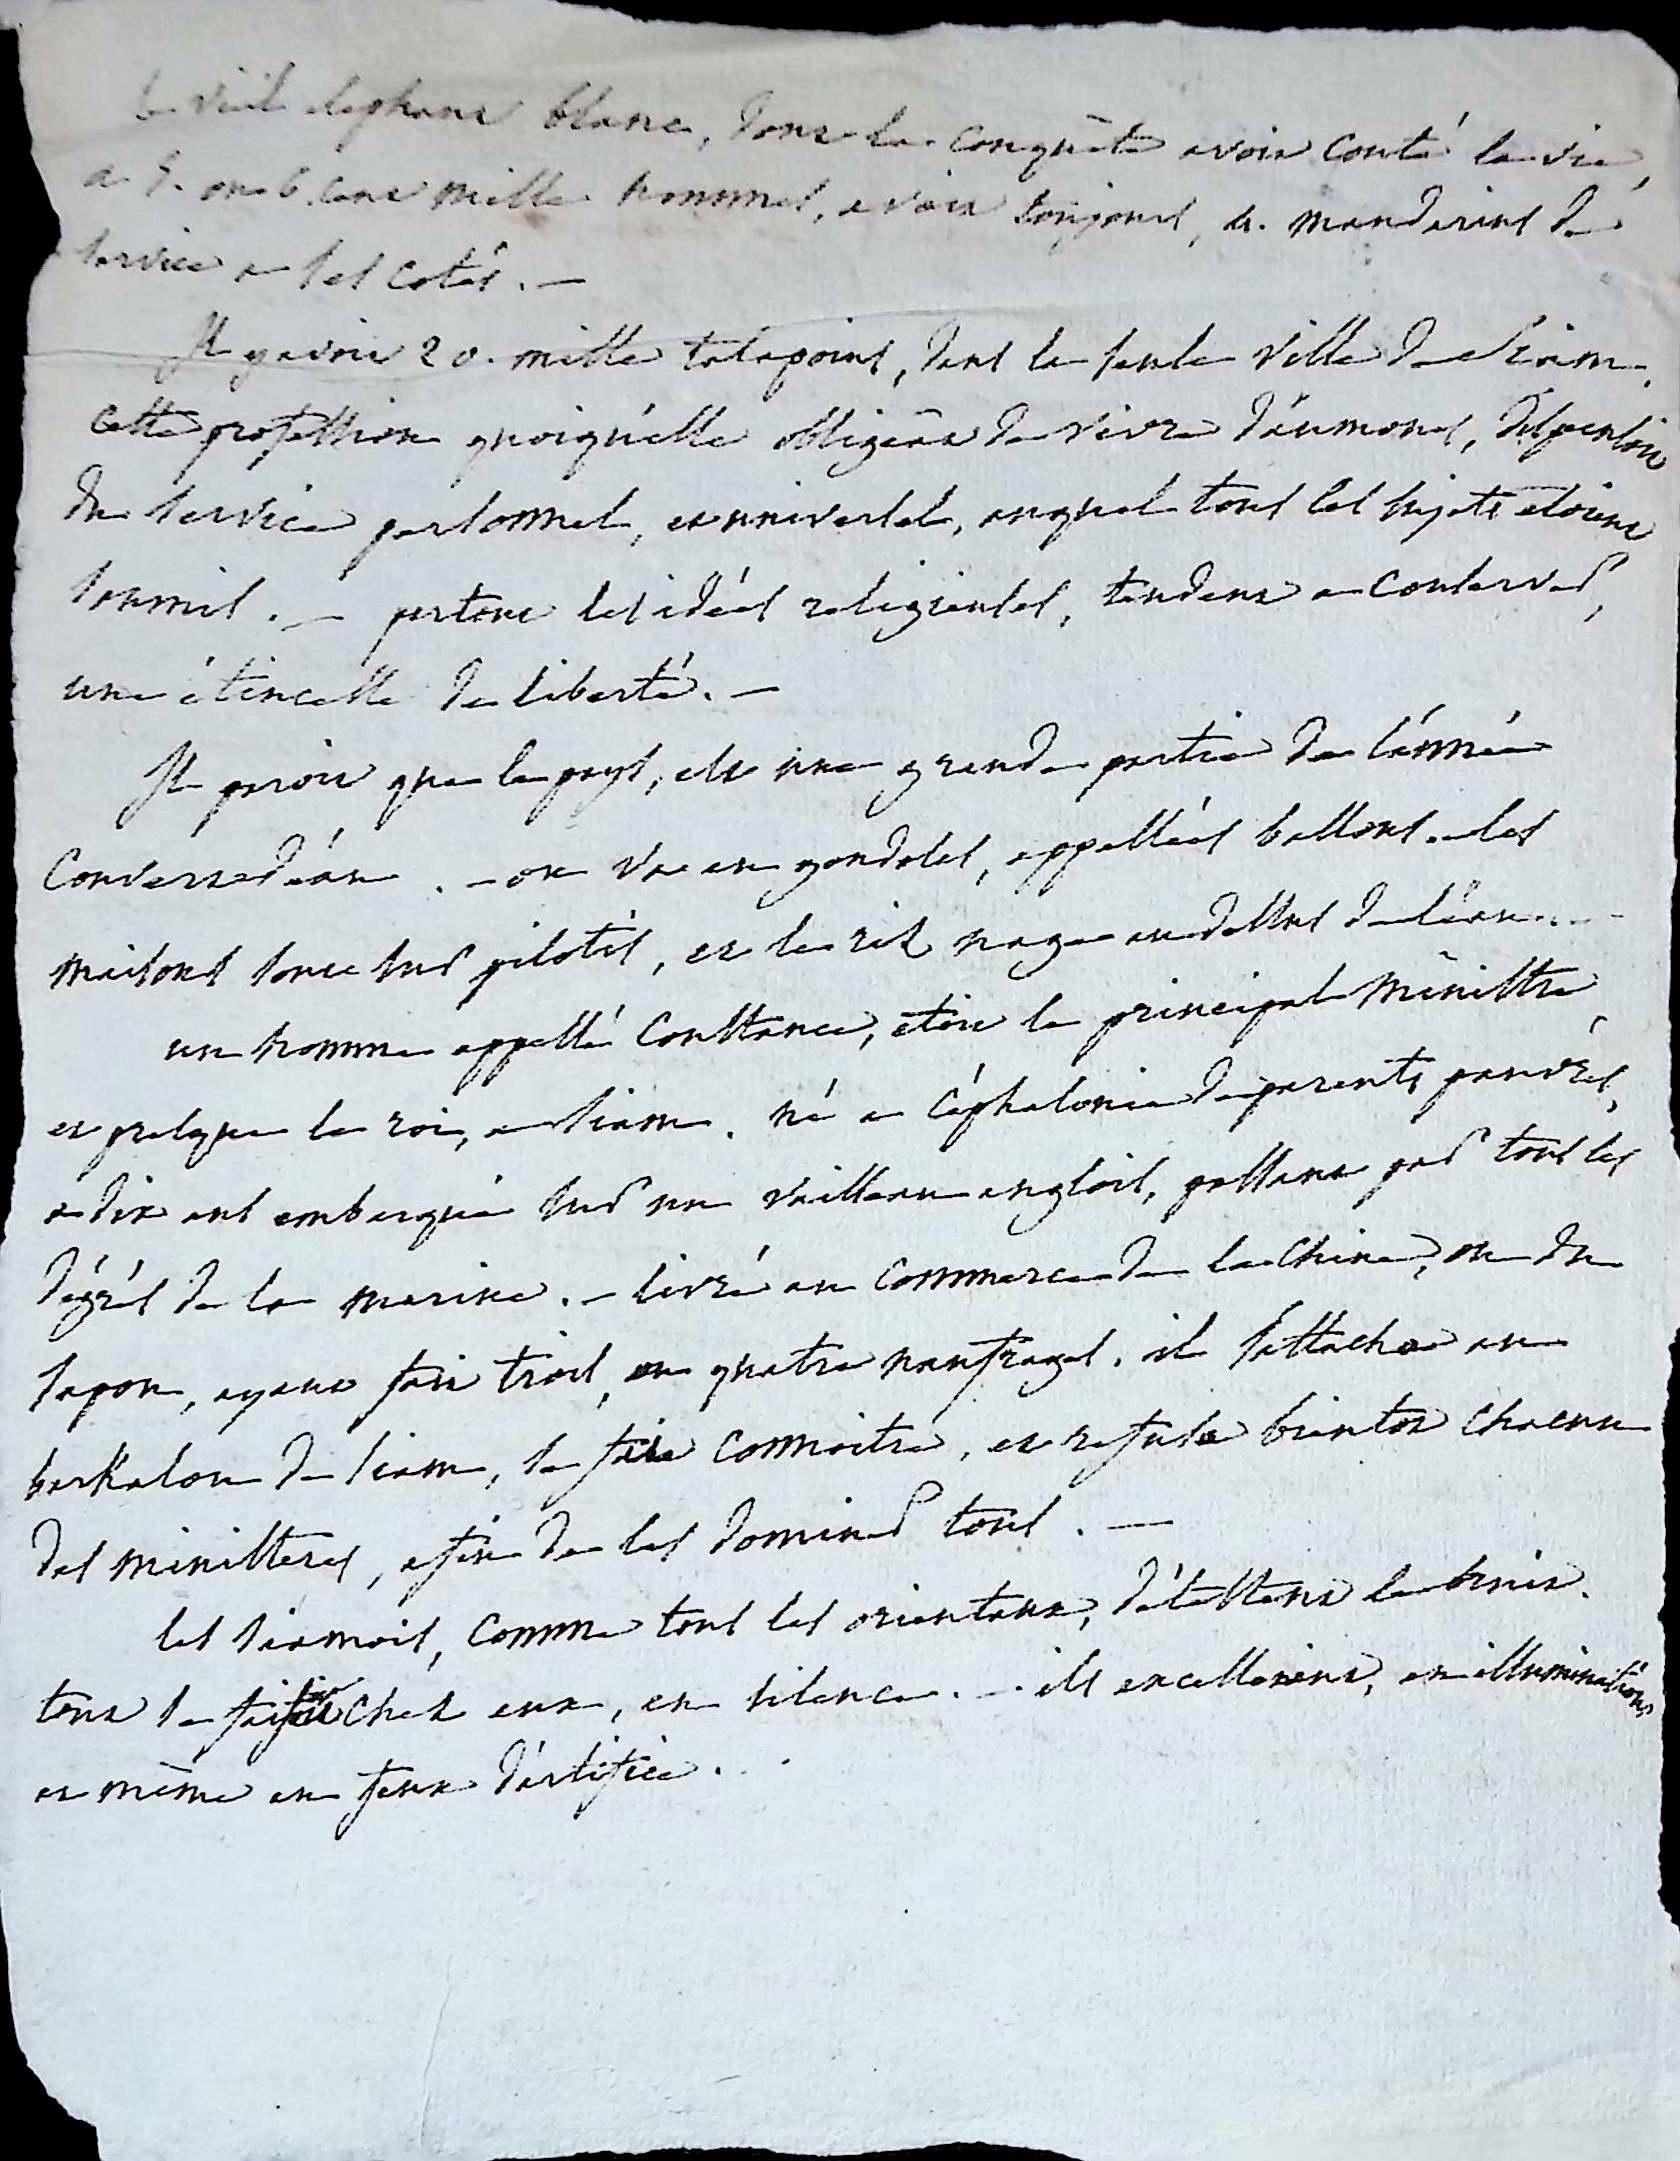 le vieil elephant blanc, dont la conquête avoit couté la vie,
a 5. ou 6. cent mille hommes, avoit toujours, 4. mandarins de
service a ses cotés. —
Il y avoit 20. mille talapoins, dans la seule ville de Siam.
cette profession quoiqu'elle obligeât de vivre d'aumones, dispensoit
du service personnel, et universel, auquel tous les sujets etoient
soumis. — partout les idées religieuses, tendent a conserver,
une étincelle de liberté. —
Il paroit que le pays, est une grande partie de l'année
couvert d'eau. — on va en gondoles, appellées ballons. les
maisons sont sur pilotis, et le riz nage au dessus de l'eau. —
un homme appellé Constance, etoit le principal ministre,
et presque le roi, a siam. né a Céphalonie de parents pauvres,
a dix ans embarqué sur un vaisseau anglois, passant par tous les
dégrés de la marine. — livré au commerce de la Chine, ou du
Japon, ayant fait trois, ou quatre naufrages. il s'attacha au
barkalon de siam, se fit connoitre, et refusa bientot chacun
des ministeres, afin de les dominer tous. —
les siamois, comme tous les orientaux, détestent le bruit.
tout se faisoit chez eux, en silence. — ils excelloient, en illuminations
et même en feux d'artifice.